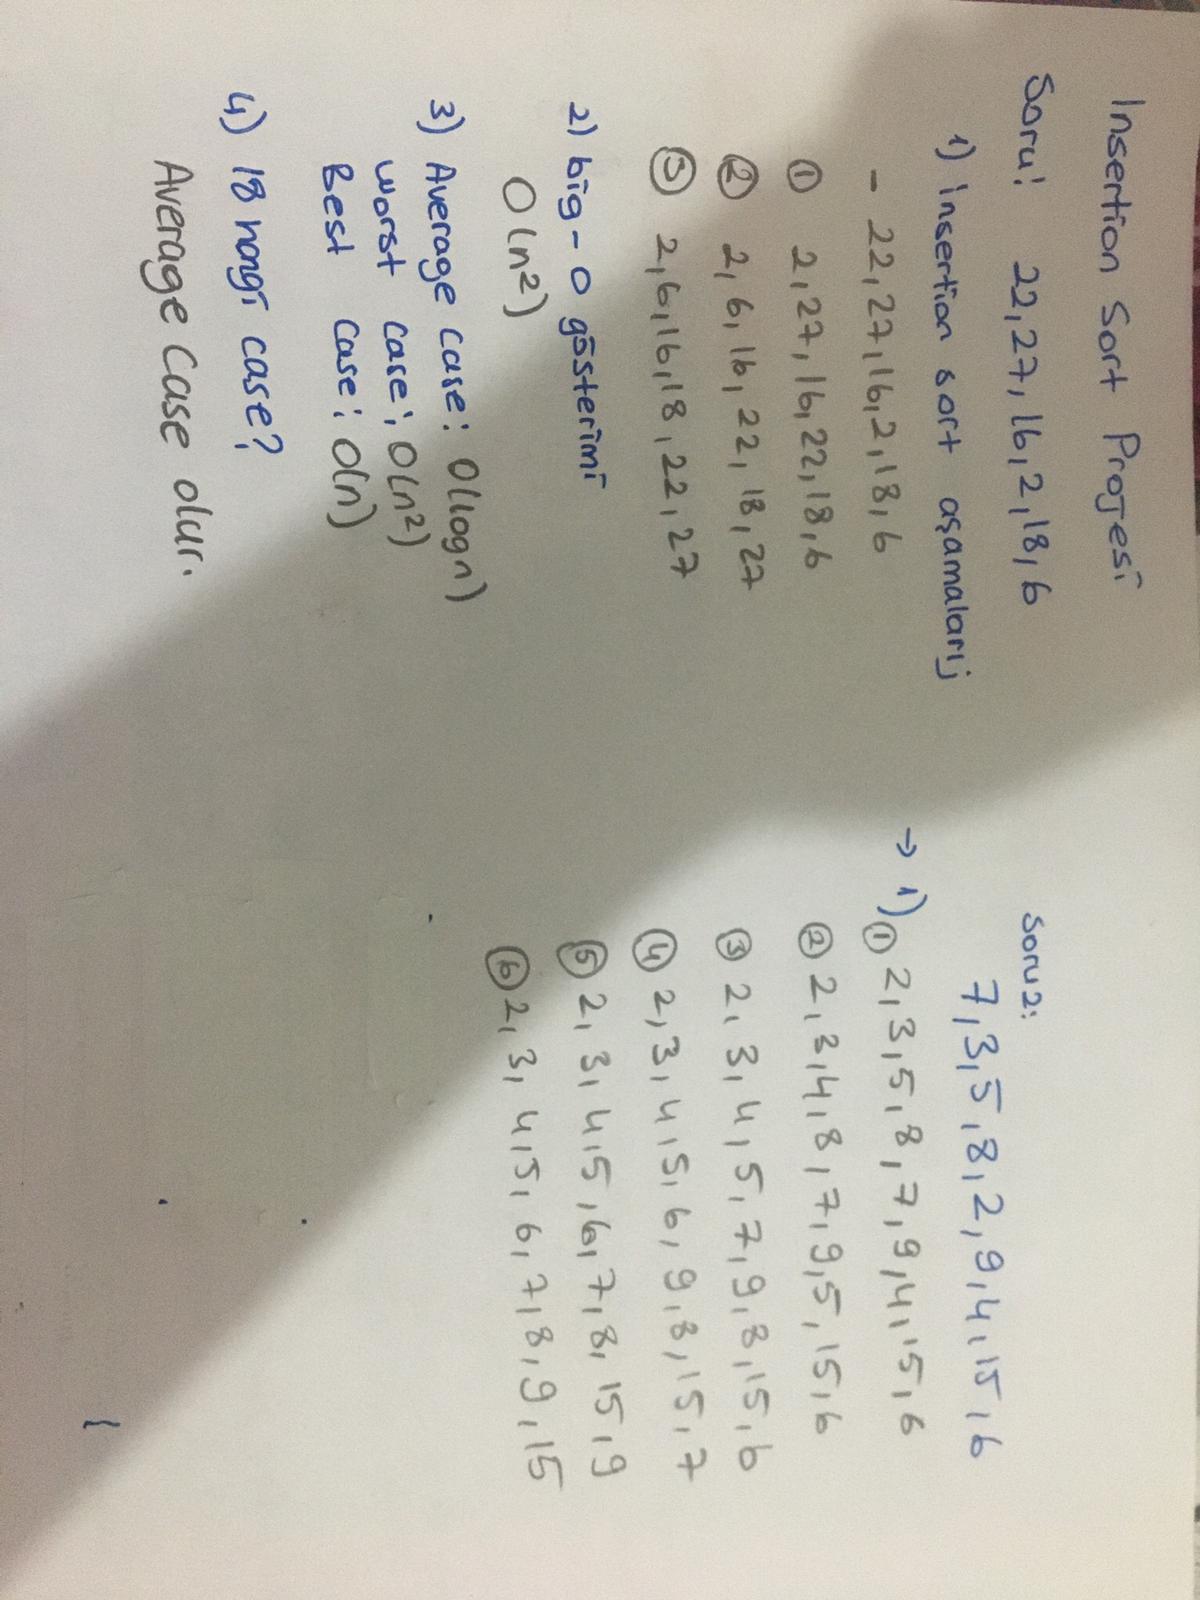 Insertion Sort Projesi
Soru: 22, 27, 16, 2, 18, 6
1) insertion sort aşamaları;
- 22, 27, 16, 2, 18, 6
① 2, 27, 16, 22, 18, 6
② 2, 6, 16, 22, 18, 27
③ 2, 6, 16, 18, 22, 27
2) big-O gösterimi
O(n²)
3) Average case: O(logn)
worst case: O(n²)
Best case: O(n)
4) 18 hangi case?
Average case olur.
Soru 2:
7, 3, 5, 8, 2, 9, 4, 15, 6
→ 1) ① 2, 3, 5, 8, 7, 9, 4, 15, 6
② 2, 3, 4, 8, 7, 9, 5, 15, 6
③ 2, 3, 4, 5, 7, 9, 8, 15, 6
④ 2, 3, 4, 5, 6, 9, 8, 15, 7
⑤ 2, 3, 4, 5, 6, 7, 8, 15, 9
⑥ 2, 3, 4, 5, 6, 7, 8, 9, 15